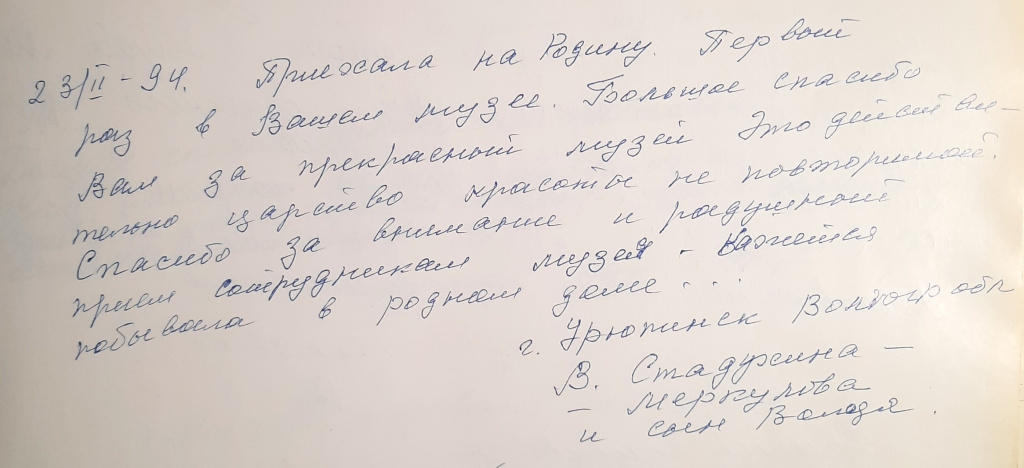 23/II-94. Приехала на Родину. Первый
раз в Вашем музее. Большое спасибо
Вам за прекрасный музей Это действи-
тельно царство красоты не повторимой.
Спасибо за внимание и радушный
прием сотрудникам музея - кажется
побывала в родном доме...
г. Урюпинск Волгогр обл
В. Стадужина -
- Меркулова
и сын Володя.